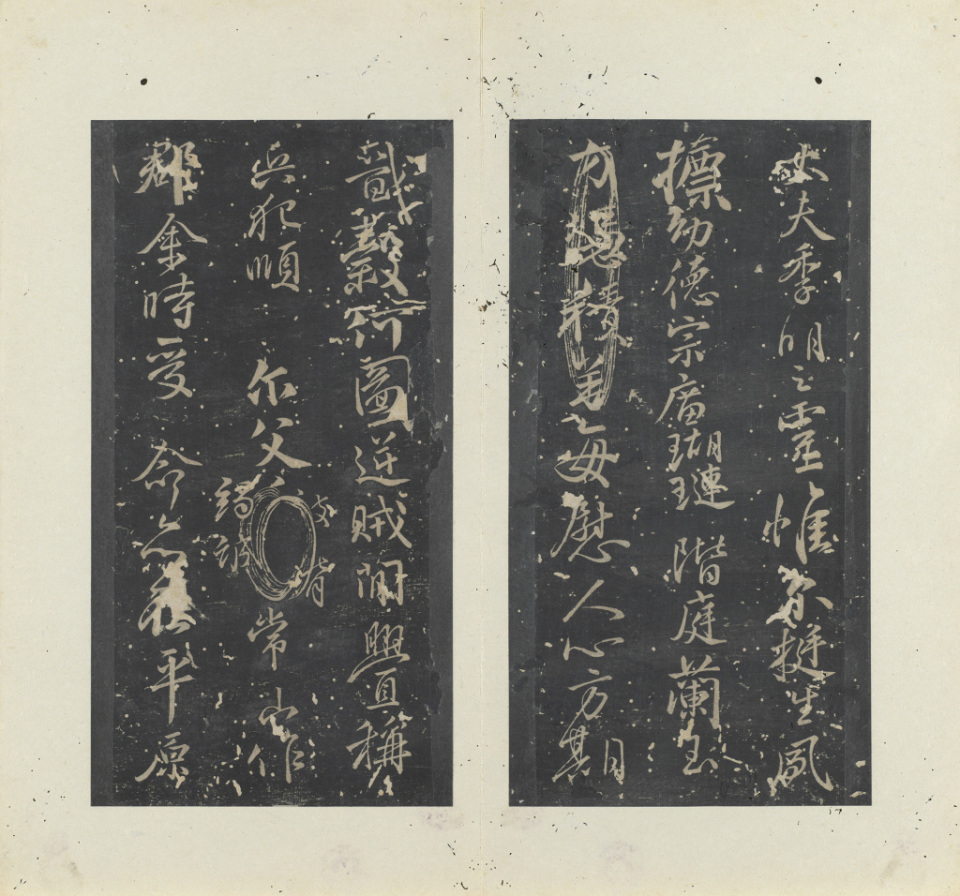 夫季明之靈惟尒挺生夙
標幼德宗廟瑚璉階庭蘭玉
方憑積善每慰人心方期
戩穀何圖逆賊閒釁稱
兵犯順尒父
被脅
竭誠
常山作
郡余時受命亦在平原